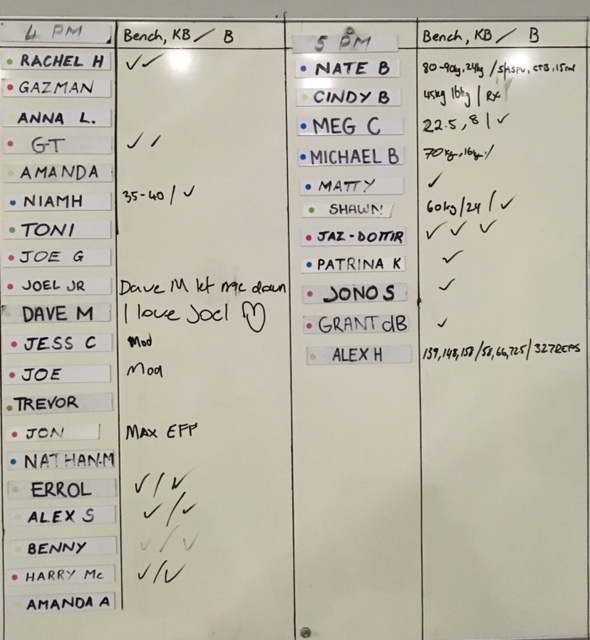 4 PM Bench, KB / B
RACHEL H ✓✓
GAZMAN
ANNA L.
GT ✓✓
AMANDA
NIAMH 35-40 / ✓
TONI
JOE G
JOEL JR Dave M let me down
DAVE M I love Joel ♡
JESS C Mod
JOE Mod
TREVOR
JON MAX EFF
NATHAN.M
ERROL ✓/✓
ALEX S ✓/✓
BENNY ✓/✓
HARRY Mc ✓/✓
AMANDA A
5 PM Bench, KB / B
NATE B 80-90kg, 24kg / CTB, 15
CINDY B 45kg 16kg / Rx
MEG C 22.5, 8 / ✓
MICHAEL B 70kg, 16kg /
MATTY ✓
SHAWN 60kg/24 / ✓
JAZ-DOTTIR ✓ ✓ ✓
PATRINA K ✓
JONO S ✓
GRANT dB ✓
ALEX H 139, 148, 158 / 58, 66, 725 / 327 REPS